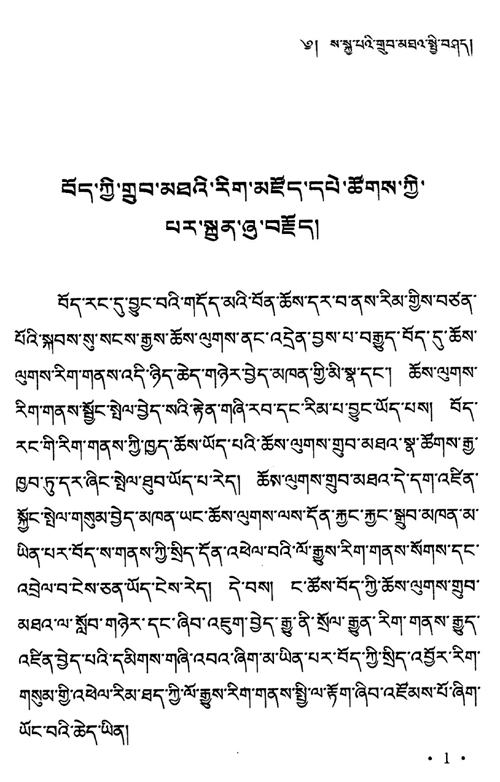 ༧། ས་སྐྱ་པའི་གྲུབ་མཐའ་སྤྱི་བཤད།
བོད་ཀྱི་གྲུབ་མཐའི་རིག་མཛོད་དཔེ་ཚོགས་ཀྱི་
པར་སྐྲུན་ཞུ་བརྗོད།
བོད་རང་དུ་བྱུང་བའི་གདོད་མའི་བོན་ཆོས་དར་བ་ནས་རིམ་གྱིས་བཙན་
པོའི་སྐབས་སུ་སངས་རྒྱས་ཆོས་ལུགས་ནང་འདྲེན་བྱས་པ་བརྒྱུད་བོད་དུ་ཆོས་
ལུགས་རིག་གནས་འདི་ཉིད་ཆེད་གཉེར་བྱེད་མཁན་གྱི་མི་སྣ་དང་། ཆོས་ལུགས་
རིག་གནས་སྦྱོང་སྤེལ་བྱེད་སའི་རྟེན་གཞི་རབ་དང་རིམ་པ་བྱུང་ཡོད་པས། བོད་
རང་གི་རིག་གནས་ཀྱི་ཁྱད་ཆོས་ཡོད་པའི་ཆོས་ལུགས་གྲུབ་མཐའ་སྣ་ཚོགས་རྒྱ་
ཁྱབ་ཏུ་དར་ཞིང་སྤེལ་ཐུབ་ཡོད་པ་རེད། ཆོས་ལུགས་གྲུབ་མཐའ་དེ་དག་འཛིན་
སྐྱོང་སྤེལ་གསུམ་བྱེད་མཁན་ཡང་ཆོས་ལུགས་ལས་དོན་རྐྱང་རྐྱང་སྒྲུབ་མཁན་མ་
ཡིན་པར་བོད་ས་གནས་ཀྱི་སྲིད་དོན་འཕེལ་བའི་ལོ་རྒྱུས་རིག་གནས་སོགས་དང་
འབྲེལ་བ་ངེས་ཅན་ཡོད་ངེས་རེད། དེ་བས། ང་ཚོས་བོད་ཀྱི་ཆོས་ལུགས་གྲུབ་
མཐའ་ལ་སློབ་གཉེར་དང་ཞིབ་འཇུག་བྱེད་རྒྱུ་ནི་སྲོལ་རྒྱུན་རིག་གནས་རྒྱུད་
འཛིན་བྱེད་པའི་དམིགས་གཞི་འབའ་ཞིག་མ་ཡིན་པར་བོད་ཀྱི་སྲིད་འབྱོར་རིག་
གསུམ་གྱི་འཕེལ་རིམ་ཐད་ཀྱི་ལོ་རྒྱུས་རིག་གནས་སྤྱི་ལ་རྟོག་ཞིབ་འཛོམས་པོ་ཞིག་
ཡོང་བའི་ཆེད་ཡིན།
• 1 •